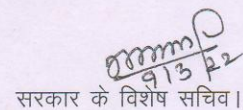 9/3/22
सरकार के विशेष सचिव।